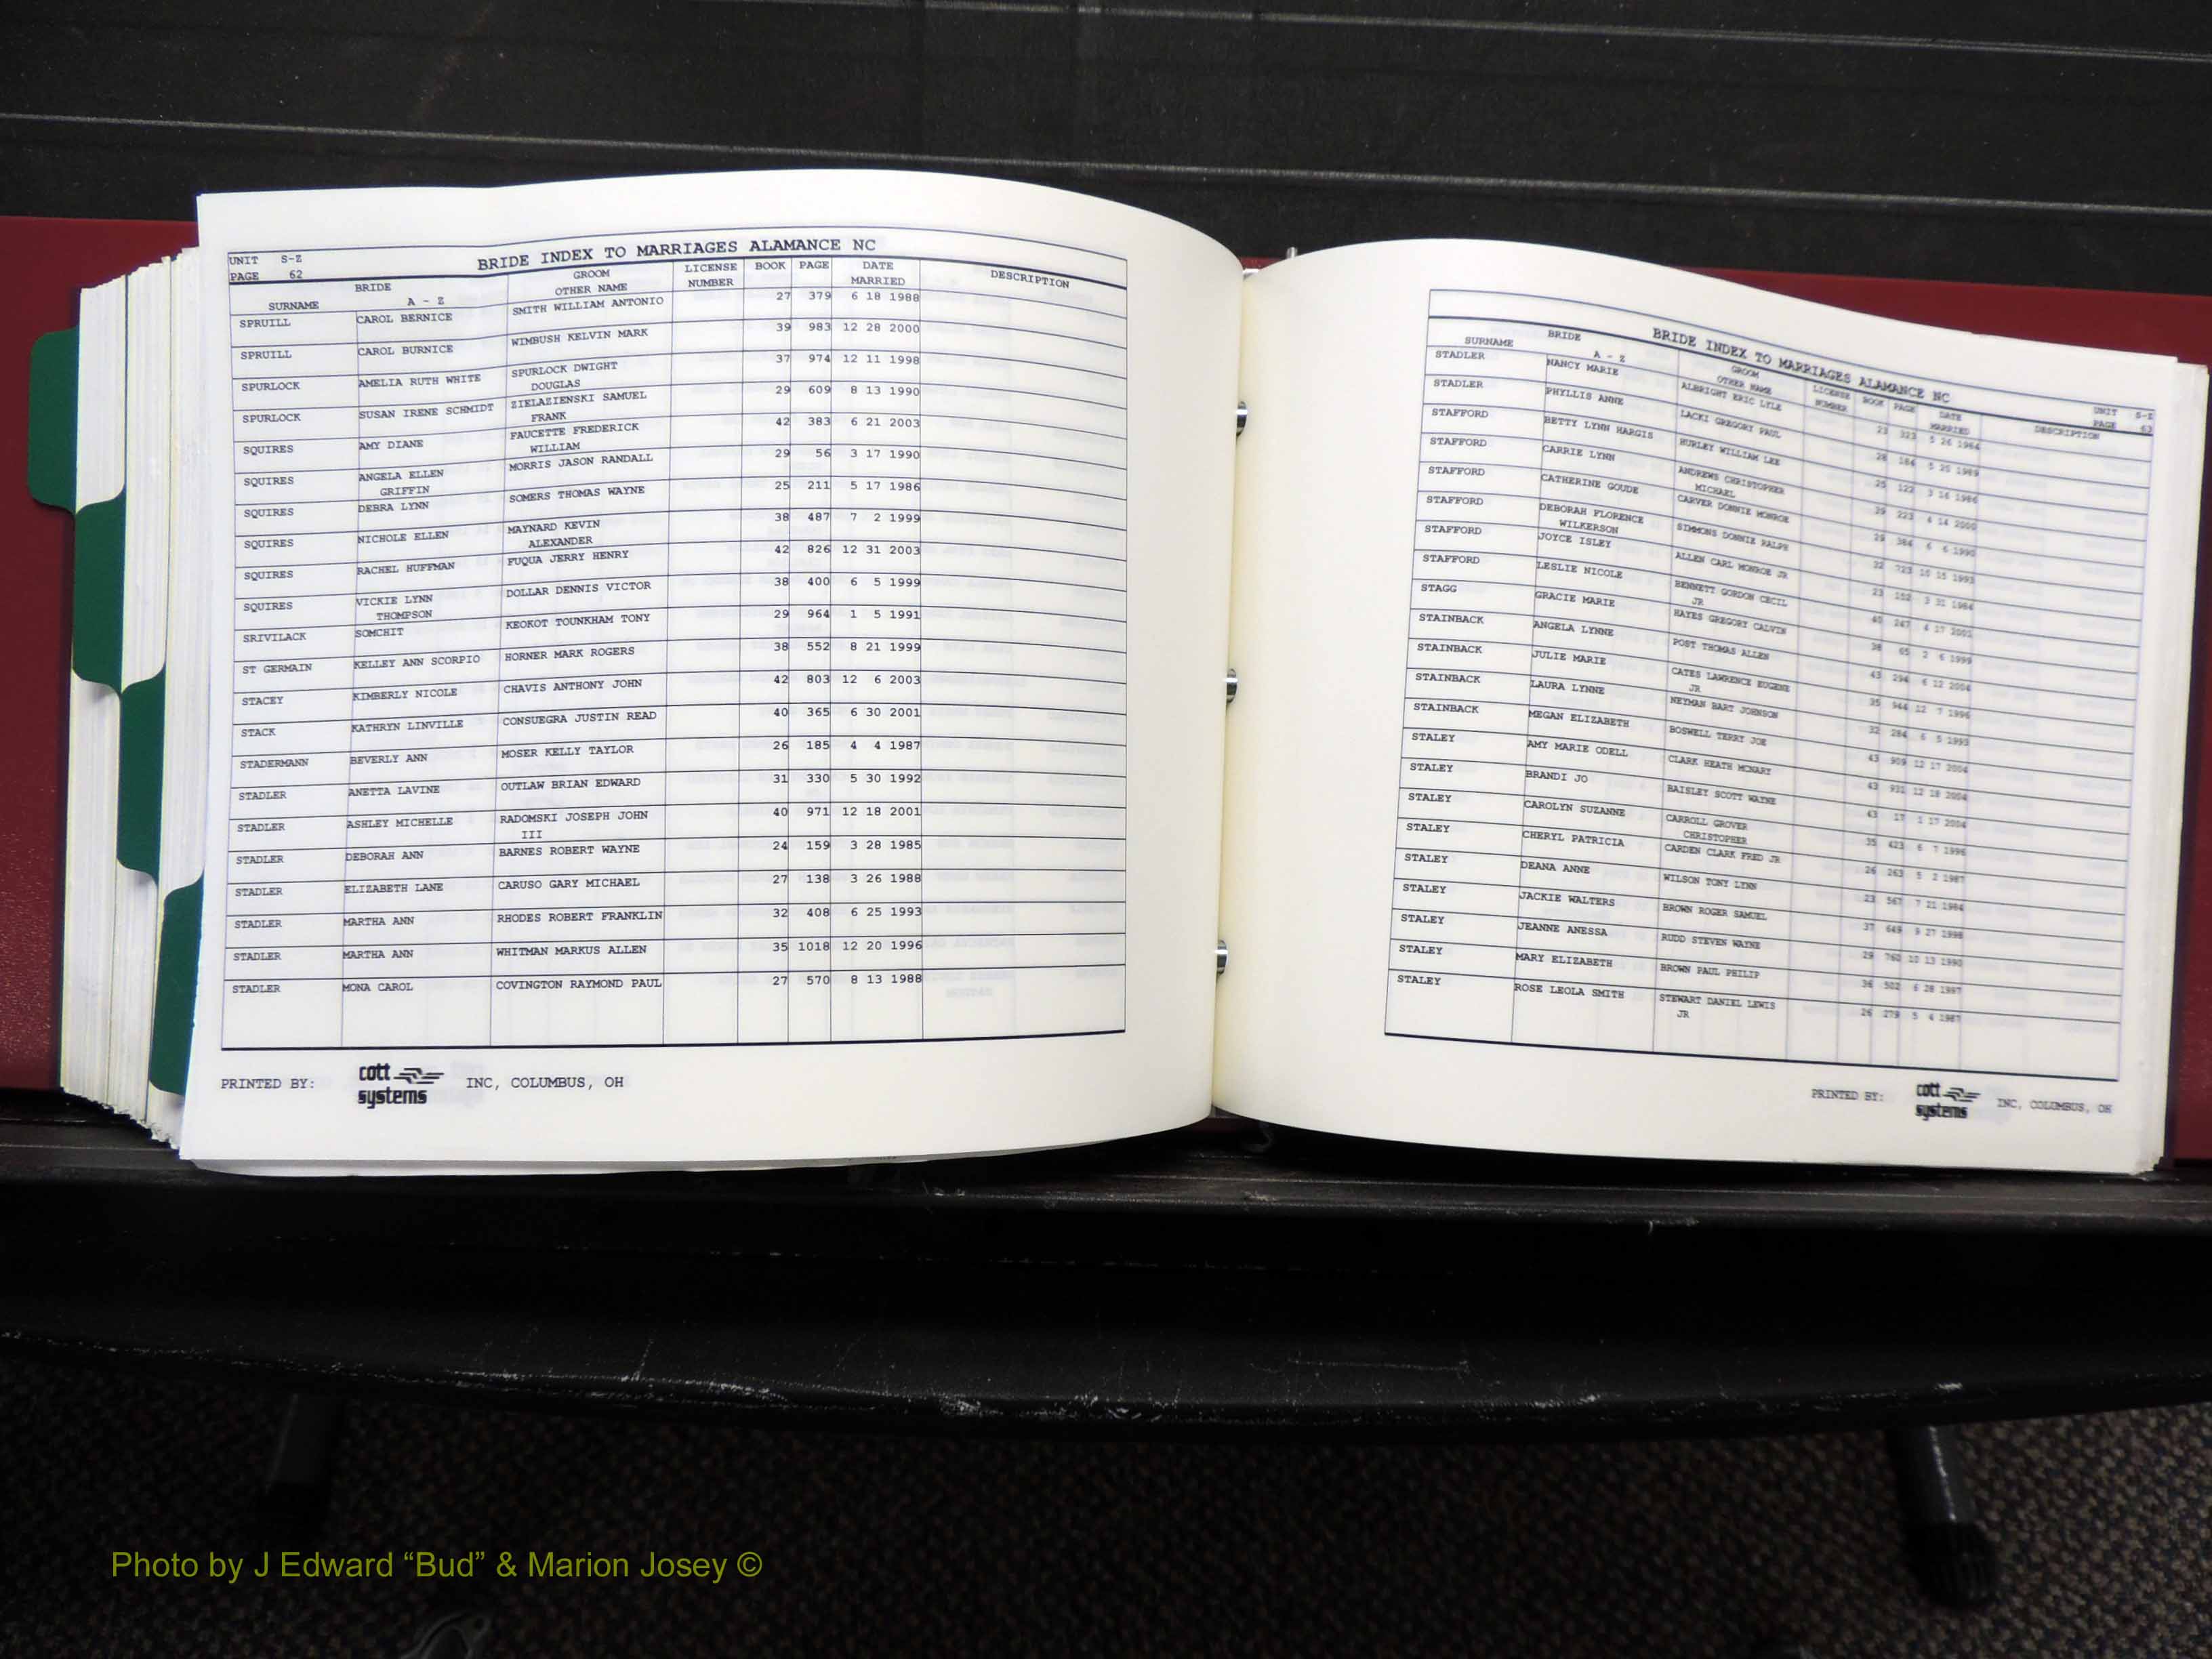 UNIT S-Z
PAGE 62
BRIDE INDEX TO MARRIAGES ALAMANCE NC
BRIDE GROOM LICENSE BOOK PAGE DATE DESCRIPTION
SURNAME A - Z OTHER NAME NUMBER MARRIED
SPRUILL CAROL BERNICE SMITH WILLIAM ANTONIO 27 379 6 18 1988
SPRUILL CAROL BURNICE WIMBUSH KELVIN MARK 39 983 12 28 2000
SPURLOCK AMELIA RUTH WHITE SPURLOCK DWIGHT 37 974 12 11 1998
DOUGLAS
SPURLOCK SUSAN IRENE SCHMIDT ZIELAZIENSKI SAMUEL 29 609 8 13 1990
FRANK
SQUIRES AMY DIANE FAUCETTE FREDERICK 42 383 6 21 2003
WILLIAM
SQUIRES ANGELA ELLEN MORRIS JASON RANDALL 29 56 3 17 1990
GRIFFIN
SQUIRES DEBRA LYNN SOMERS THOMAS WAYNE 25 211 5 17 1986
SQUIRES NICHOLE ELLEN MAYNARD KEVIN 38 487 7 2 1999
ALEXANDER
SQUIRES RACHEL HUFFMAN FUQUA JERRY HENRY 42 826 12 31 2003
SQUIRES VICKIE LYNN DOLLAR DENNIS VICTOR 38 400 6 5 1999
THOMPSON
SRIVILACK SOMCHIT KEOKOT TOUNKHAM TONY 29 964 1 5 1991
ST GERMAIN KELLEY ANN SCORPIO HORNER MARK ROGERS 38 552 8 21 1999
STACEY KIMBERLY NICOLE CHAVIS ANTHONY JOHN 42 803 12 6 2003
STACK KATHRYN LINVILLE CONSUEGRA JUSTIN READ 40 365 6 30 2001
STADERMANN BEVERLY ANN MOSER KELLY TAYLOR 26 185 4 4 1987
STADLER ANETTA LAVINE OUTLAW BRIAN EDWARD 31 330 5 30 1992
STADLER ASHLEY MICHELLE RADOMSKI JOSEPH JOHN 40 971 12 18 2001
III
STADLER DEBORAH ANN BARNES ROBERT WAYNE 24 159 3 28 1985
STADLER ELIZABETH LANE CARUSO GARY MICHAEL 27 138 3 26 1988
STADLER MARTHA ANN RHODES ROBERT FRANKLIN 32 408 6 25 1993
STADLER MARTHA ANN WHITMAN MARKUS ALLEN 35 1018 12 20 1996
STADLER MONA CAROL COVINGTON RAYMOND PAUL 27 570 8 13 1988
PRINTED BY: cott systems INC, COLUMBUS, OH
BRIDE INDEX TO MARRIAGES ALAMANCE NC
UNIT S-Z
PAGE 63
BRIDE GROOM LICENSE BOOK PAGE DATE DESCRIPTION
SURNAME A - Z OTHER NAME NUMBER MARRIED
STADLER NANCY MARIE ALBRIGHT ERIC LYLE 23 323 5 26 1984
STADLER PHYLLIS ANNE LACKI GREGORY PAUL 28 184 5 25 1989
STAFFORD BETTY LYNN HARGIS HURLEY WILLIAM LEE 25 122 3 16 1986
STAFFORD CARRIE LYNN ANDREWS CHRISTOPHER 39 223 4 14 2000
MICHAEL
STAFFORD CATHERINE GOUDE CARVER DONNIE MONROE 29 384 6 6 1990
STAFFORD DEBORAH FLORENCE SIMMONS DONNIE RALPH 32 723 10 15 1993
WILKERSON
STAFFORD JOYCE ISLEY ALLEN CARL MONROE JR 23 102 3 31 1984
STAFFORD LESLIE NICOLE BENNETT GORDON CECIL 40 247 4 27 2001
JR
STAGG GRACIE MARIE HAYES GREGORY CALVIN 38 65 2 6 1999
STAINBACK ANGELA LYNNE POST THOMAS ALLEN 43 294 6 12 2004
STAINBACK JULIE MARIE CATES LAWRENCE EUGENE 35 944 12 7 1996
JR
STAINBACK LAURA LYNNE NEYMAN BART JOHNSON 32 284 6 5 1993
STAINBACK MEGAN ELIZABETH BOSWELL TERRY JOE 43 909 12 17 2004
STALEY AMY MARIE ODELL CLARK HEATH MCNARY 43 931 12 18 2004
STALEY BRANDI JO BAISLEY SCOTT WAYNE 43 17 1 17 2004
STALEY CAROLYN SUZANNE CARROLL GROVER 35 423 6 7 1996
CHRISTOPHER
STALEY CHERYL PATRICIA CARDEN CLARK FRED JR 26 263 5 2 1987
STALEY DEANA ANNE WILSON TONY LYNN 23 567 7 21 1984
STALEY JACKIE WALTERS BROWN ROGER SAMUEL 37 649 9 27 1998
STALEY JEANNE ANESSA RUDD STEVEN WAYNE 29 760 10 13 1990
STALEY MARY ELIZABETH BROWN PAUL PHILIP 36 502 6 28 1997
STALEY ROSE LEOLA SMITH STEWART DANIEL LEWIS 26 279 5 4 1987
JR
PRINTED BY: cott systems INC, COLUMBUS, OH
Photo by J Edward “Bud” & Marion Josey ©